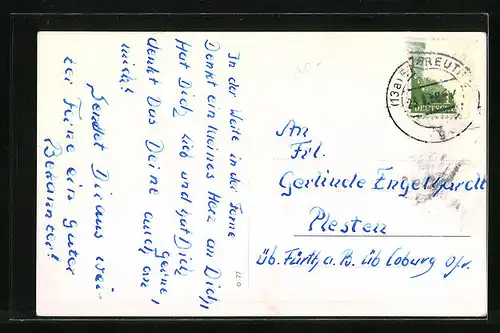 In der Weite in der Ferne
Denkt ein kleines Herz an Dich,
Hat Dich lieb und hat Dich
gerne,
denkt Das Deine auch an
mich?
Sendet Dir aus wei-
ter Ferne ein guter
Bekannter!
(13a) BAYREUTH 2
DEUTSCHE
An
Frl.
Gerlinde Engelhardt
Plesten
üb. Fürth a. B. üb Coburg Ofr.